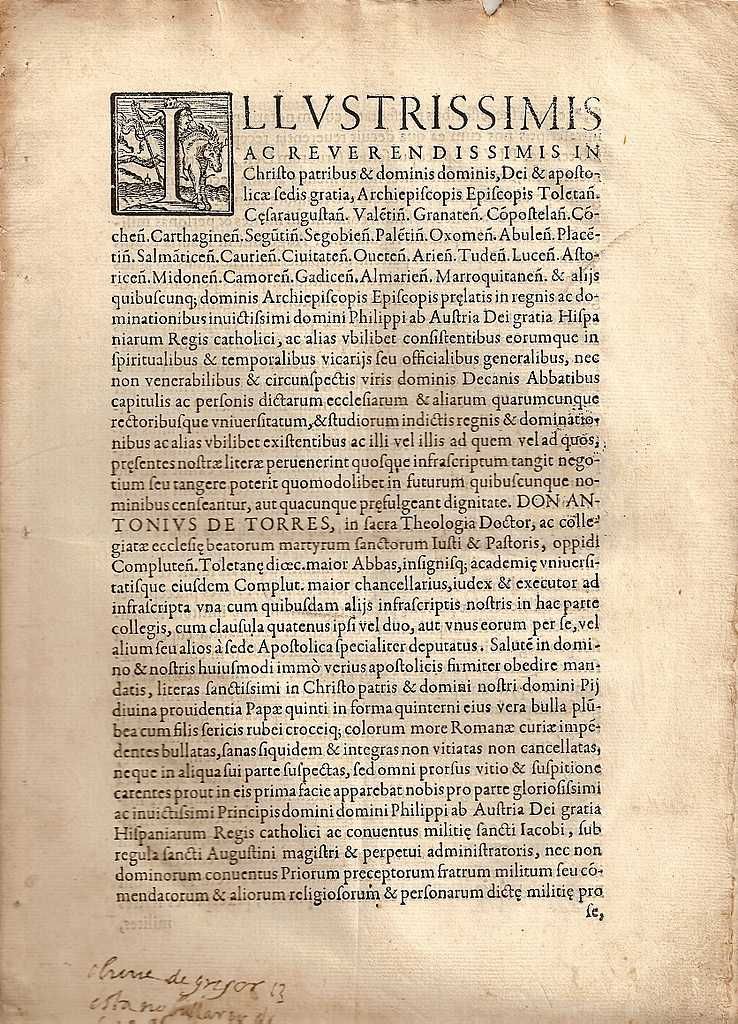 ILLVSTRISSIMIS
AC REVERENDISSIMIS IN
Chriſto patribus & dominis dominis, Dei & apoſto-
licæ ſedis gratia, Archiepiſcopis Epiſcopis Toletañ.
Cęſarauguſtañ. Valẽtiñ. Granateñ. Cõpoſtelañ. Cõ-
cheñ. Carthagineñ. Segũtiñ. Segobieñ. Palẽtiñ. Oxomeñ. Abuleñ. Placẽ-
tiñ. Salmãticeñ. Caurieñ. Ciuitateñ. Oueteñ. Arieñ. Tudeñ. Luceñ. Aſto-
riceñ. Midoneñ. Camoreñ. Gadiceñ. Almarieñ. Marroquitaneñ. & alijs
quibuſcunq; dominis Archiepiſcopis Epiſcopis pręlatis in regnis ac do-
minationibus inuictiſſimi domini Philippi ab Auſtria Dei gratia Hiſpa
niarum Regis catholici, ac alias vbilibet conſiſtentibus eorumque in
ſpiritualibus & temporalibus vicarijs ſeu officialibus generalibus, nec
non venerabilibus & circunſpectis viris dominis Decanis Abbatibus
capitulis ac perſonis dictarum eccleſiarum & aliarum quarumcunque
rectoribuſque vniuerſitatum, & ſtudiorum indictis regnis & dominatio-
nibus ac alias vbilibet exiſtentibus ac illi vel illis ad quem vel ad quos,
pręſentes noſtræ literæ peruenerint quoſque infraſcriptum tangit nego-
tium ſeu tangere poterit quomodolibet in futurum quibuſcunque no-
minibus cenſeantur, aut quacunque pręfulgeant dignitate. DON AN-
TONIVS DE TORRES, in ſacra Theologia Doctor, ac colle-
giatæ eccleſię beatorum martyrum ſanctorum Iuſti & Paſtoris, oppidi
Compluteñ. Toletanę diœc. maior Abbas, inſigniſq; academię vniuerſi-
tatiſque eiuſdem Complut. maior chancellarius, iudex & executor ad
infraſcripta vna cum quibuſdam alijs infraſcriptis noſtris in hac parte
collegis, cum clauſula quatenus ipſi vel duo, aut vnus eorum per ſe, vel
alium ſeu alios à ſede Apoſtolica ſpecialiter deputatus. Salutẽ in domi-
no & noſtris huiuſmodi immò verius apoſtolicis firmiter obedire man-
datis, literas ſanctiſſimi in Chriſto patris & domini noſtri domini Pij
diuina prouidentia Papæ quinti in forma quinterni eius vera bulla plũ-
bea cum filis ſericis rubei croceiq; colorum more Romanæ curiæ impẽ-
dentes bullatas, ſanas ſiquidem & integras non vitiatas non cancellatas,
neque in aliqua ſui parte ſuſpectas, ſed omni prorſus vitio & ſuſpitione
carentes prout in eis prima facie apparebat nobis pro parte glorioſiſſimi
ac inuictiſſimi Principis domini domini Philippi ab Auſtria Dei gratia
Hiſpaniarum Regis catholici ac conuentus militię ſancti Iacobi, ſub
regula ſancti Auguſtini magiſtri & perpetui adminiſtratoris, nec non
dominorum conuentus Priorum preceptorum fratrum militum ſeu cõ-
mendatorum & aliorum religioſorum & perſonarum dictę militię pro
ſe,
de gregor 13
esta no